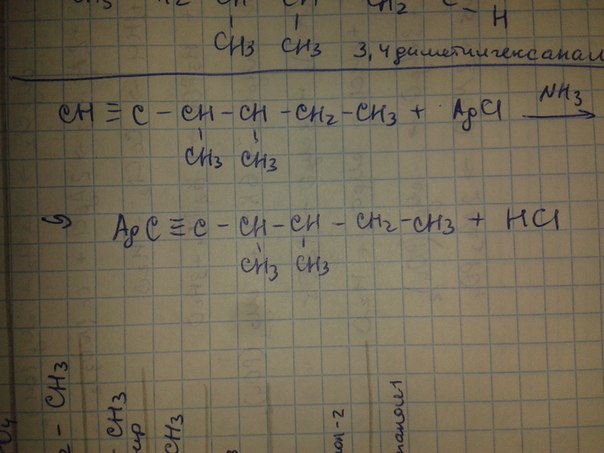 CH CH CH2 C - H
CH3 CH3 3,4 диметилгексанал
CH ≡ C - CH - CH - CH2 - CH3 + AgCl NH3 →
CH3 CH3
↪ AgC ≡ C - CH - CH - CH2 - CH3 + HCl
CH3 CH3
- CH3
- CH3
CH3
-2